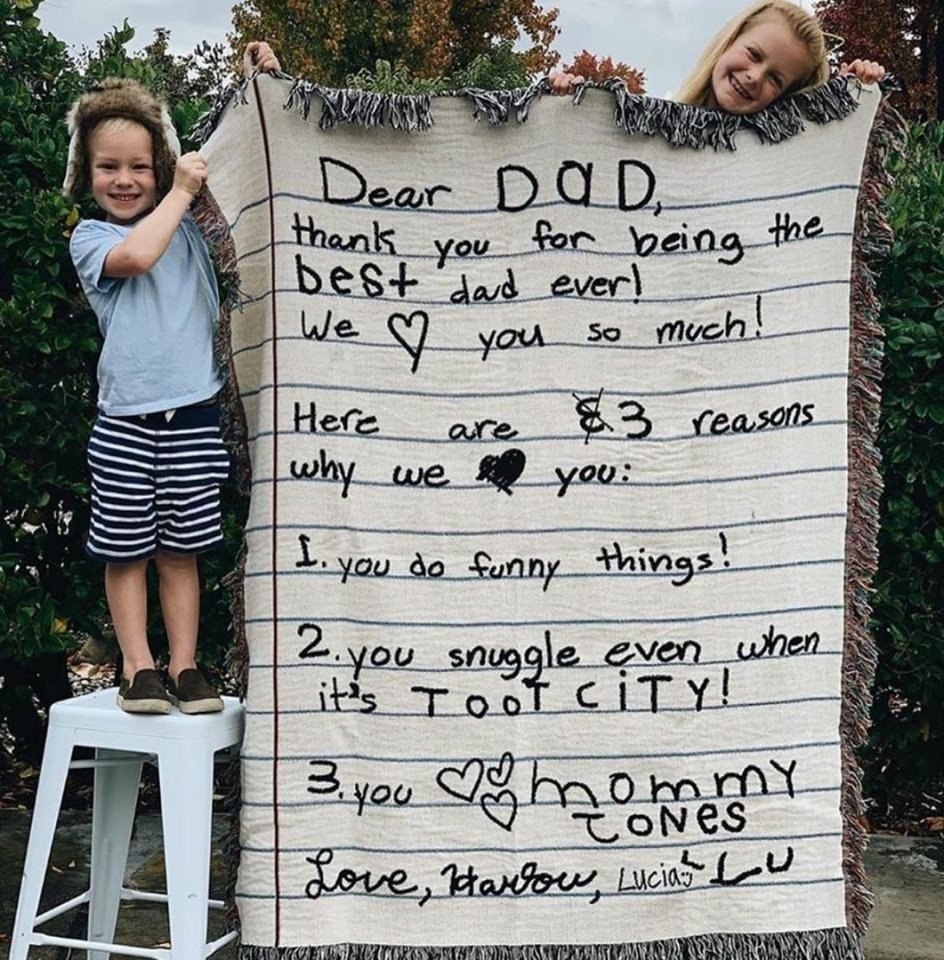 Dear DaD,
thank you for being the
best dad ever!
We ♡ you so much!
Here are 3 reasons
why we ♥ you:
1. you do funny things!
2. you snuggle even when
it's TOOT CiTY!
3. you ♡♡♡ mommy
TONes
Love, Harlow, Lucia LU